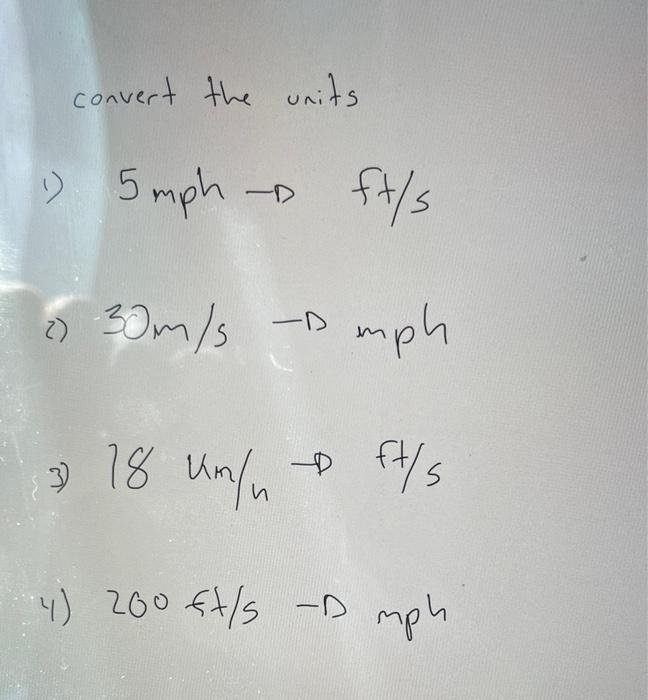 convert the units
1) 5 mph → ft/s
2) 30 m/s → mph
3) 18 km/h → ft/s
4) 200 ft/s → mph